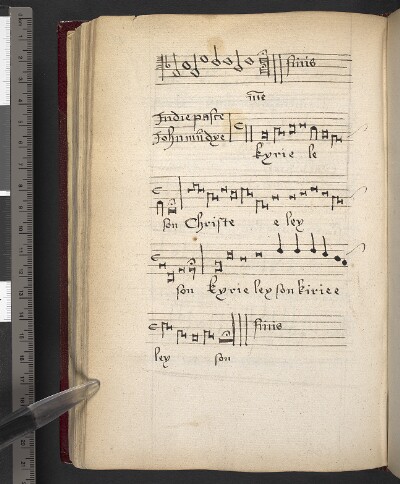 finis
me
In die pasce
John mudye
kyrie le
son Christe e ley
son kyrie ley son kirie e
finis
ley son